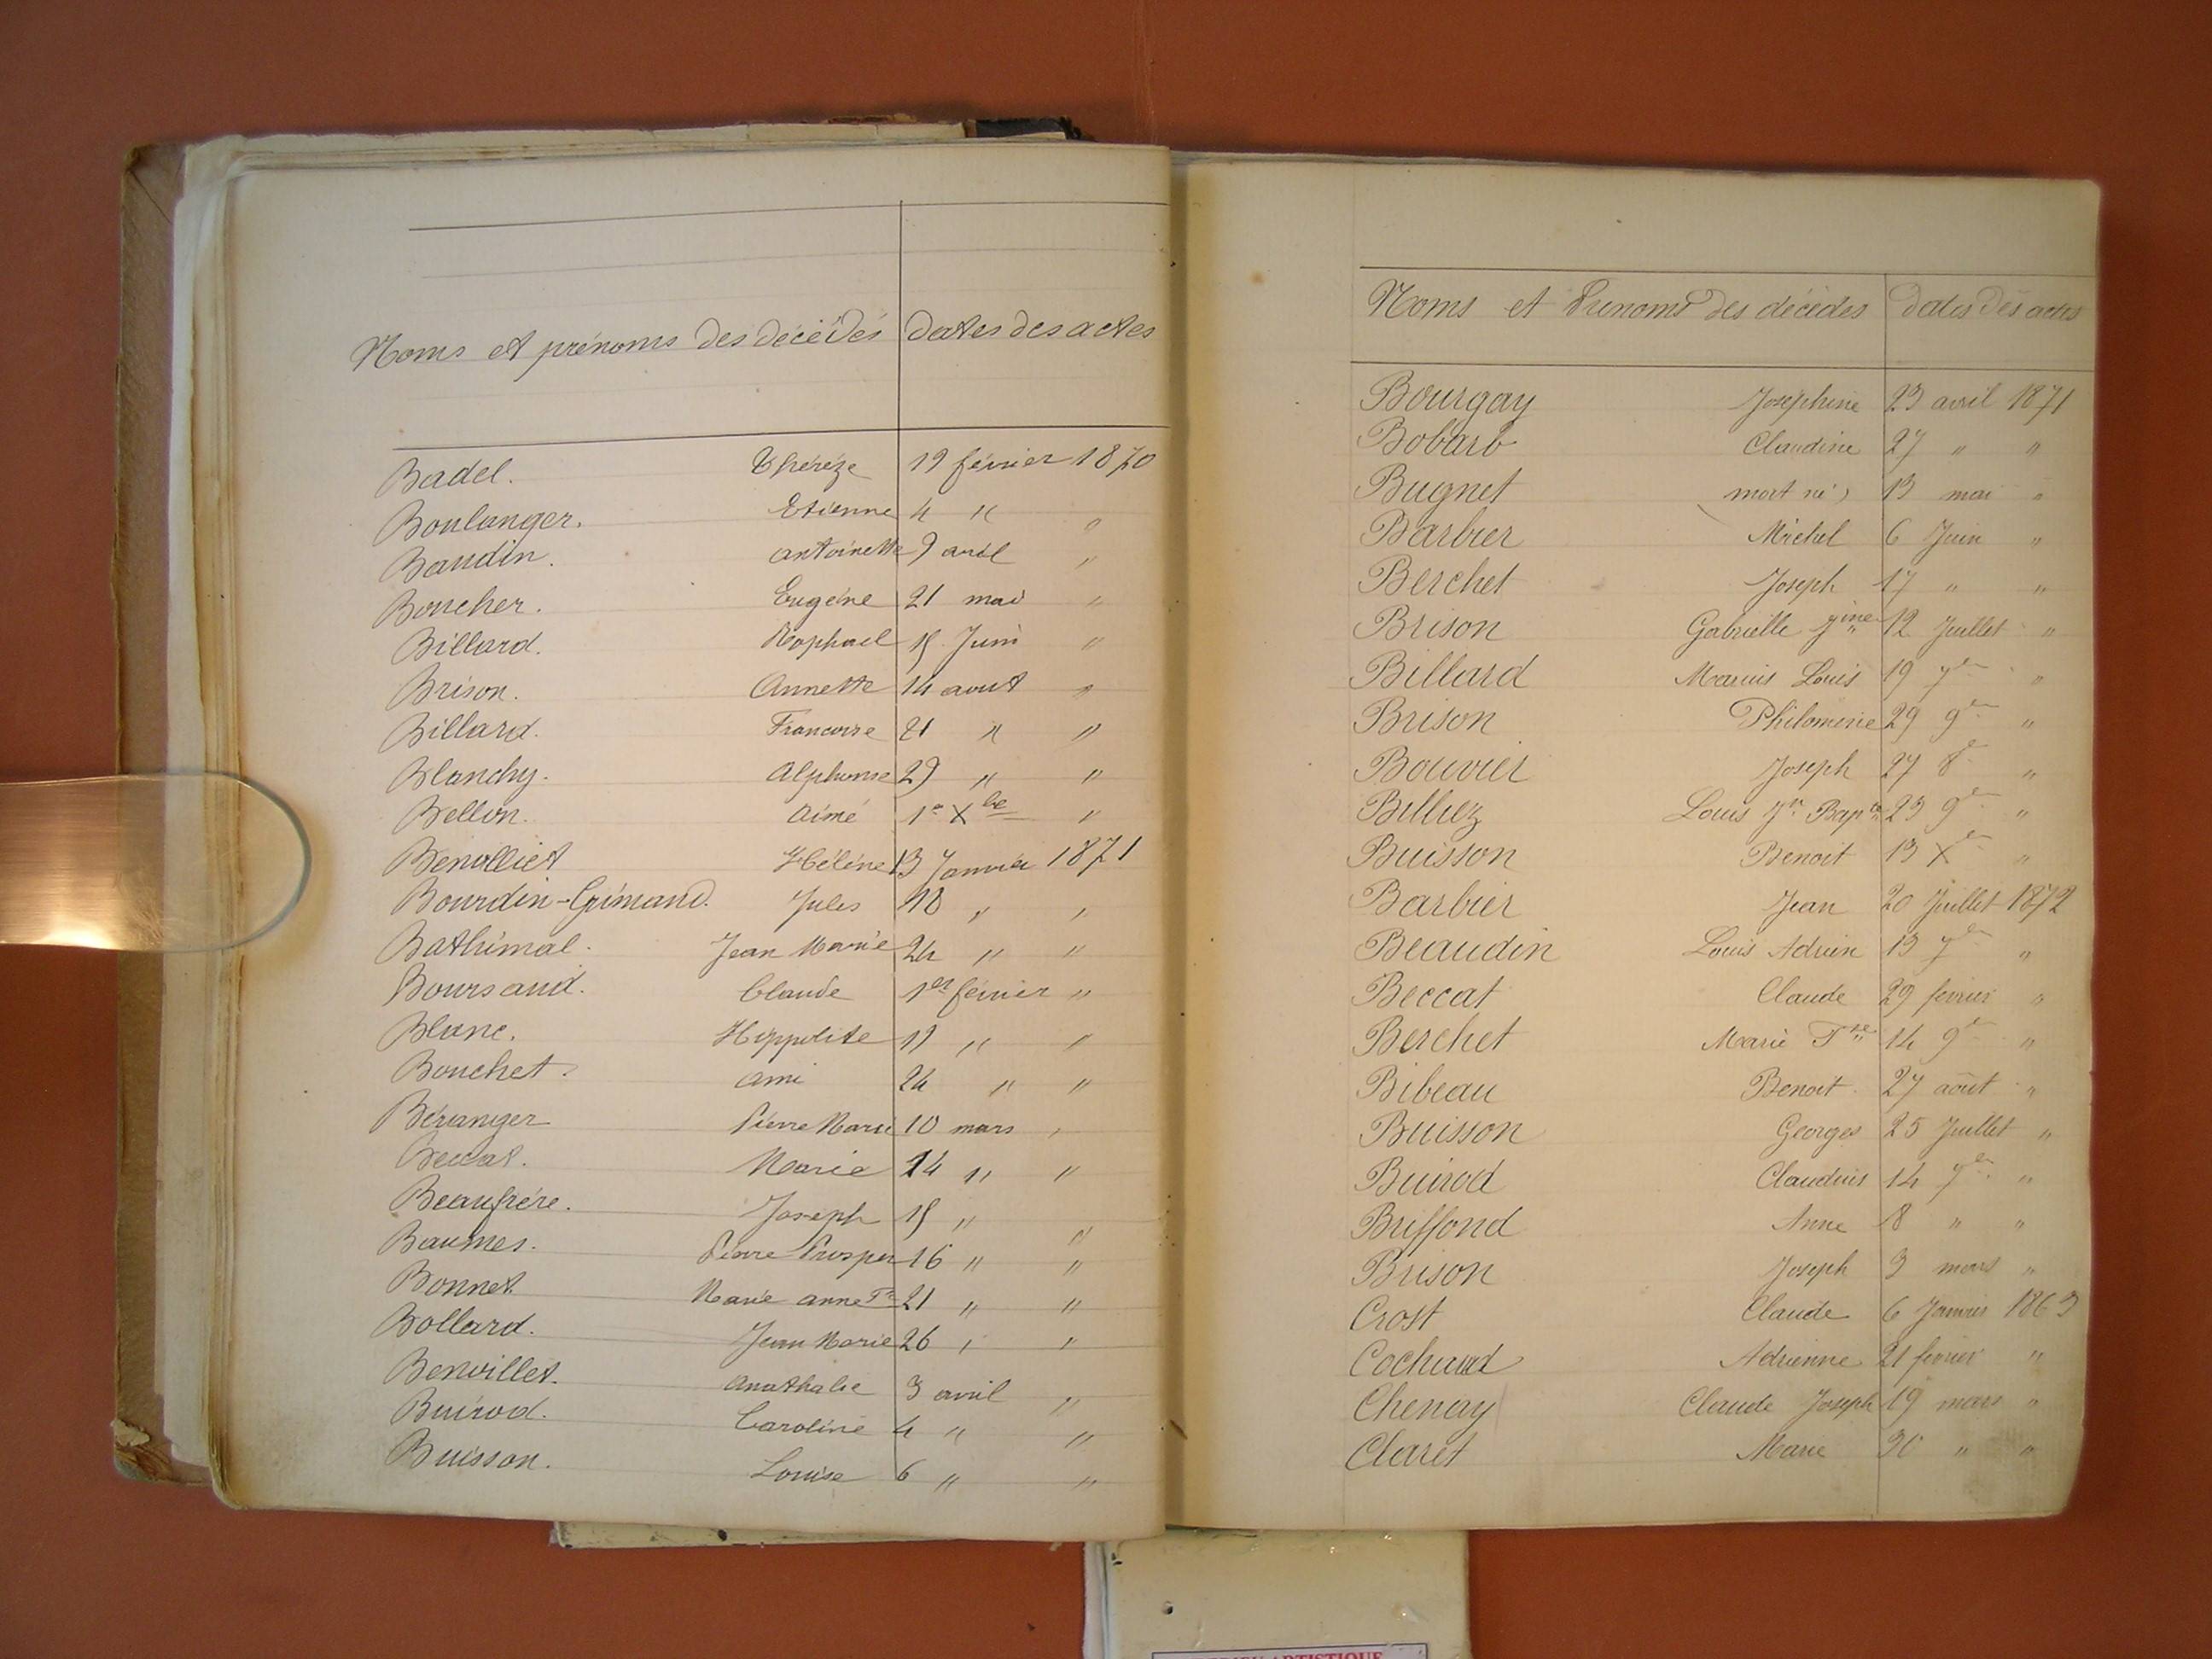 Noms et prénoms des décédés dates des actes
Badel. Thérèze 19 février 1870
Boulanger. Etienne 4 " "
Baudin. antoinette 9 avril "
Boucher. Eugéne 21 mai "
Billard. Raphael 15 Juin "
Brison. Annette 14 aout "
Billard. Francoise 21 " "
Blanchy. Alphonse 29 " "
Bellon. Aimé 1er Xbre "
Benolliet Hélène 13 Janvier 1871
Bourdin-Grimand. Jules 18 " "
Bathimal. Jean Marie 24 " "
Boursaud. Claude 1er février "
Blanc. Hippolite 11 " "
Bouchet. Ami 24 " "
Béranger Pierre Marie 10 mars "
Beccat. Marie 14 " "
Beaufrére. Joseph 15 " "
Baumes. Pierre Prosper 16 " "
Bonnet. Marie anne 21 " "
Bollard. Jean Marie 26 " "
Benoillet. Anathalie 3 avril "
Buirod. Caroline 4 " "
Buisson. Louise 6 " "
Noms et Prenoms des décédes dates des actes
Bourgay Joséphine 23 avril 1871
Bobard Claudine 27 " "
Bugnet mort né) 13 mai "
Barbier Michel 6 Juin "
Berchet Joseph 17 " "
Brison Gabrielle Jine 12 Juillet "
Billard Marius Louis 19 7bre "
Brison Philomène 29 9bre "
Bouvier Joseph 27 8bre "
Billiez Louis Jn Bapte 23 9bre "
Buisson Benoit 13 Xbre "
Barbier Jean 20 Juillet 1872
Beaudin Louis Adrien 13 7bre "
Beccat Claude 29 fevrier "
Berchet Marie 14 9bre "
Bibeau Benoit 27 août "
Buisson Georges 25 Juillet "
Buirod Claudius 14 7bre "
Briffond Anne 8 " "
Brison Joseph 3 mars "
Crost Claude 6 Janvier 1863
Cochard Adrienne 21 fevrier "
Chenay Claude Joseph 19 mars "
Claret Marie 30 " "